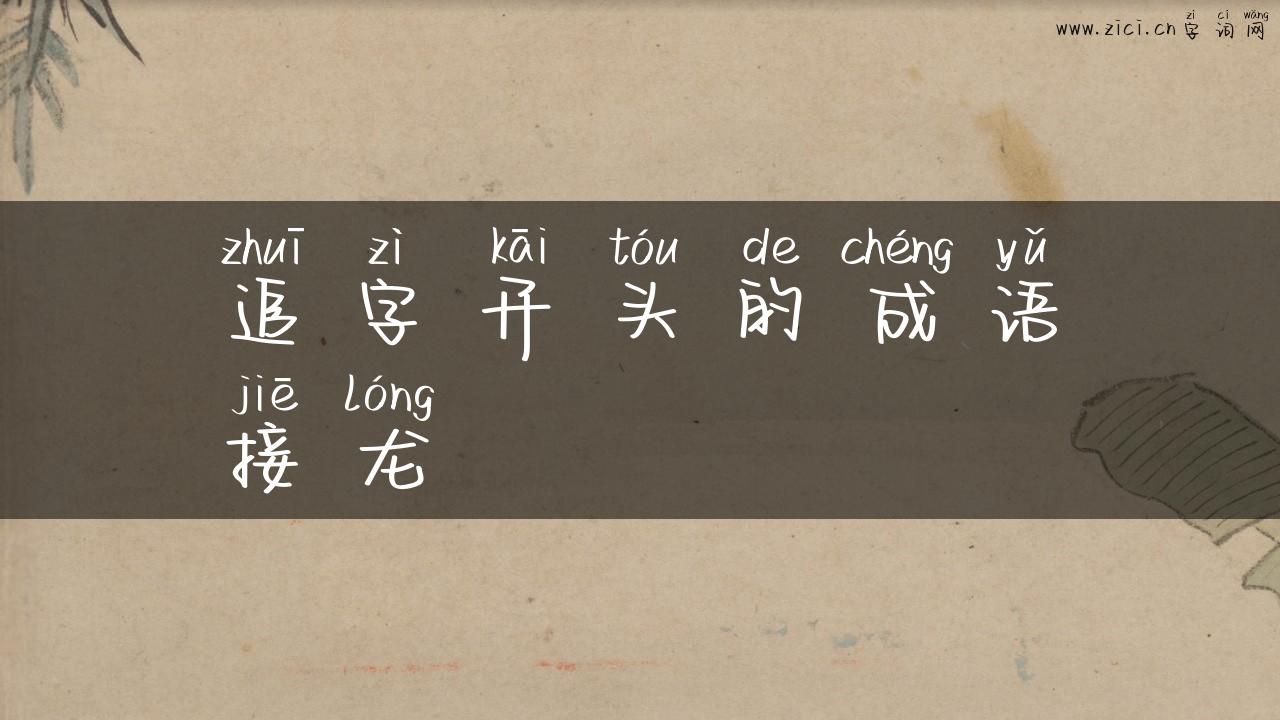 zì cí wǎng
www.zici.cn 字词网
zhuī zì kāi tóu de chéng yǔ
追字开头的成语
jiē lóng
接龙